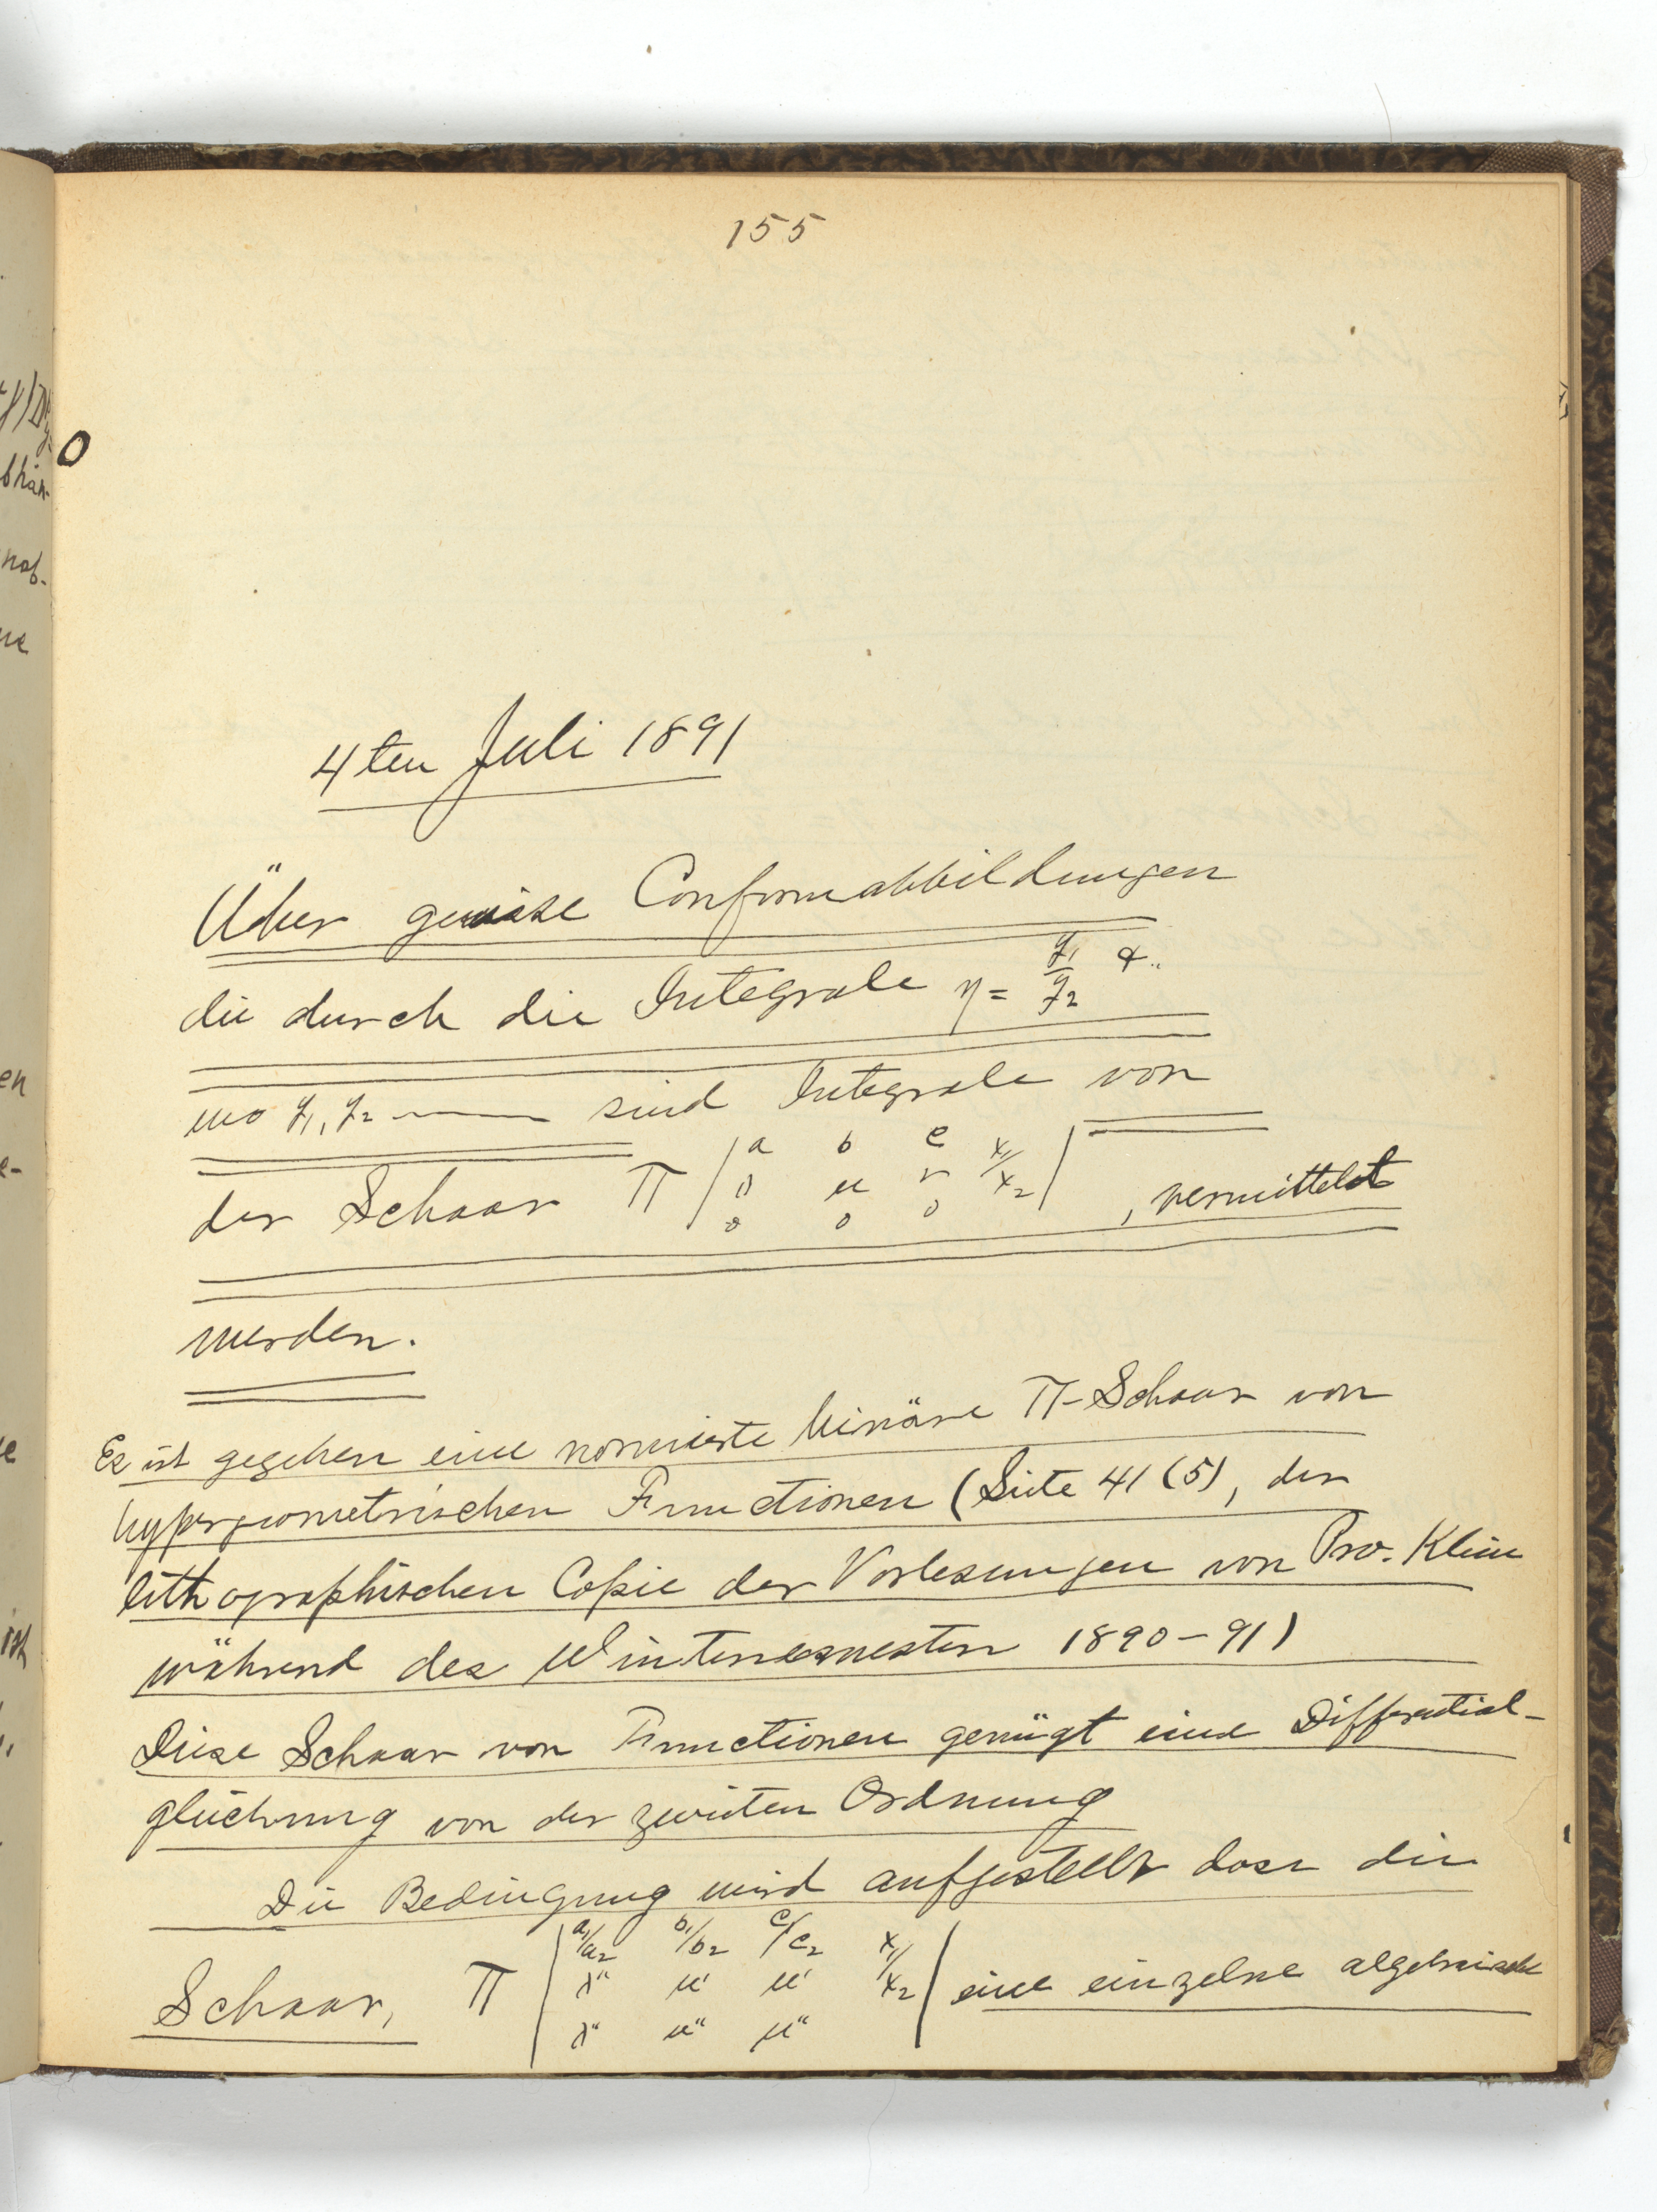 155
4ten Juli 1891
Über gewisse Conformabbildungen
die durch die Integrale η = y₁/y₂ &..
wo y₁, y₂ —— sind Integrale von
der Schaar Π | a b c x₁/x₂ |
λ μ ν
0 0 0
, vermittelst
werden.
Es ist gegeben eine normierte binäre Π-Schaar von
hypergeometrischen Functionen (Seite 41 (5), der
lithographischen Copie der Vorlesungen von Pro. Klein
während des Wintersemesters 1890-91)
Diese Schaar von Functionen genügt eine Differential-
gleichung von der zweiten Ordnung
Die Bedingung wird aufgestellt dass die
Schaar, Π | a₁/a₂ b₁/b₂ c₁/c₂ x₁/x₂ | eine einzelne algebraische
λ" μ' μ'
λ" μ" μ"